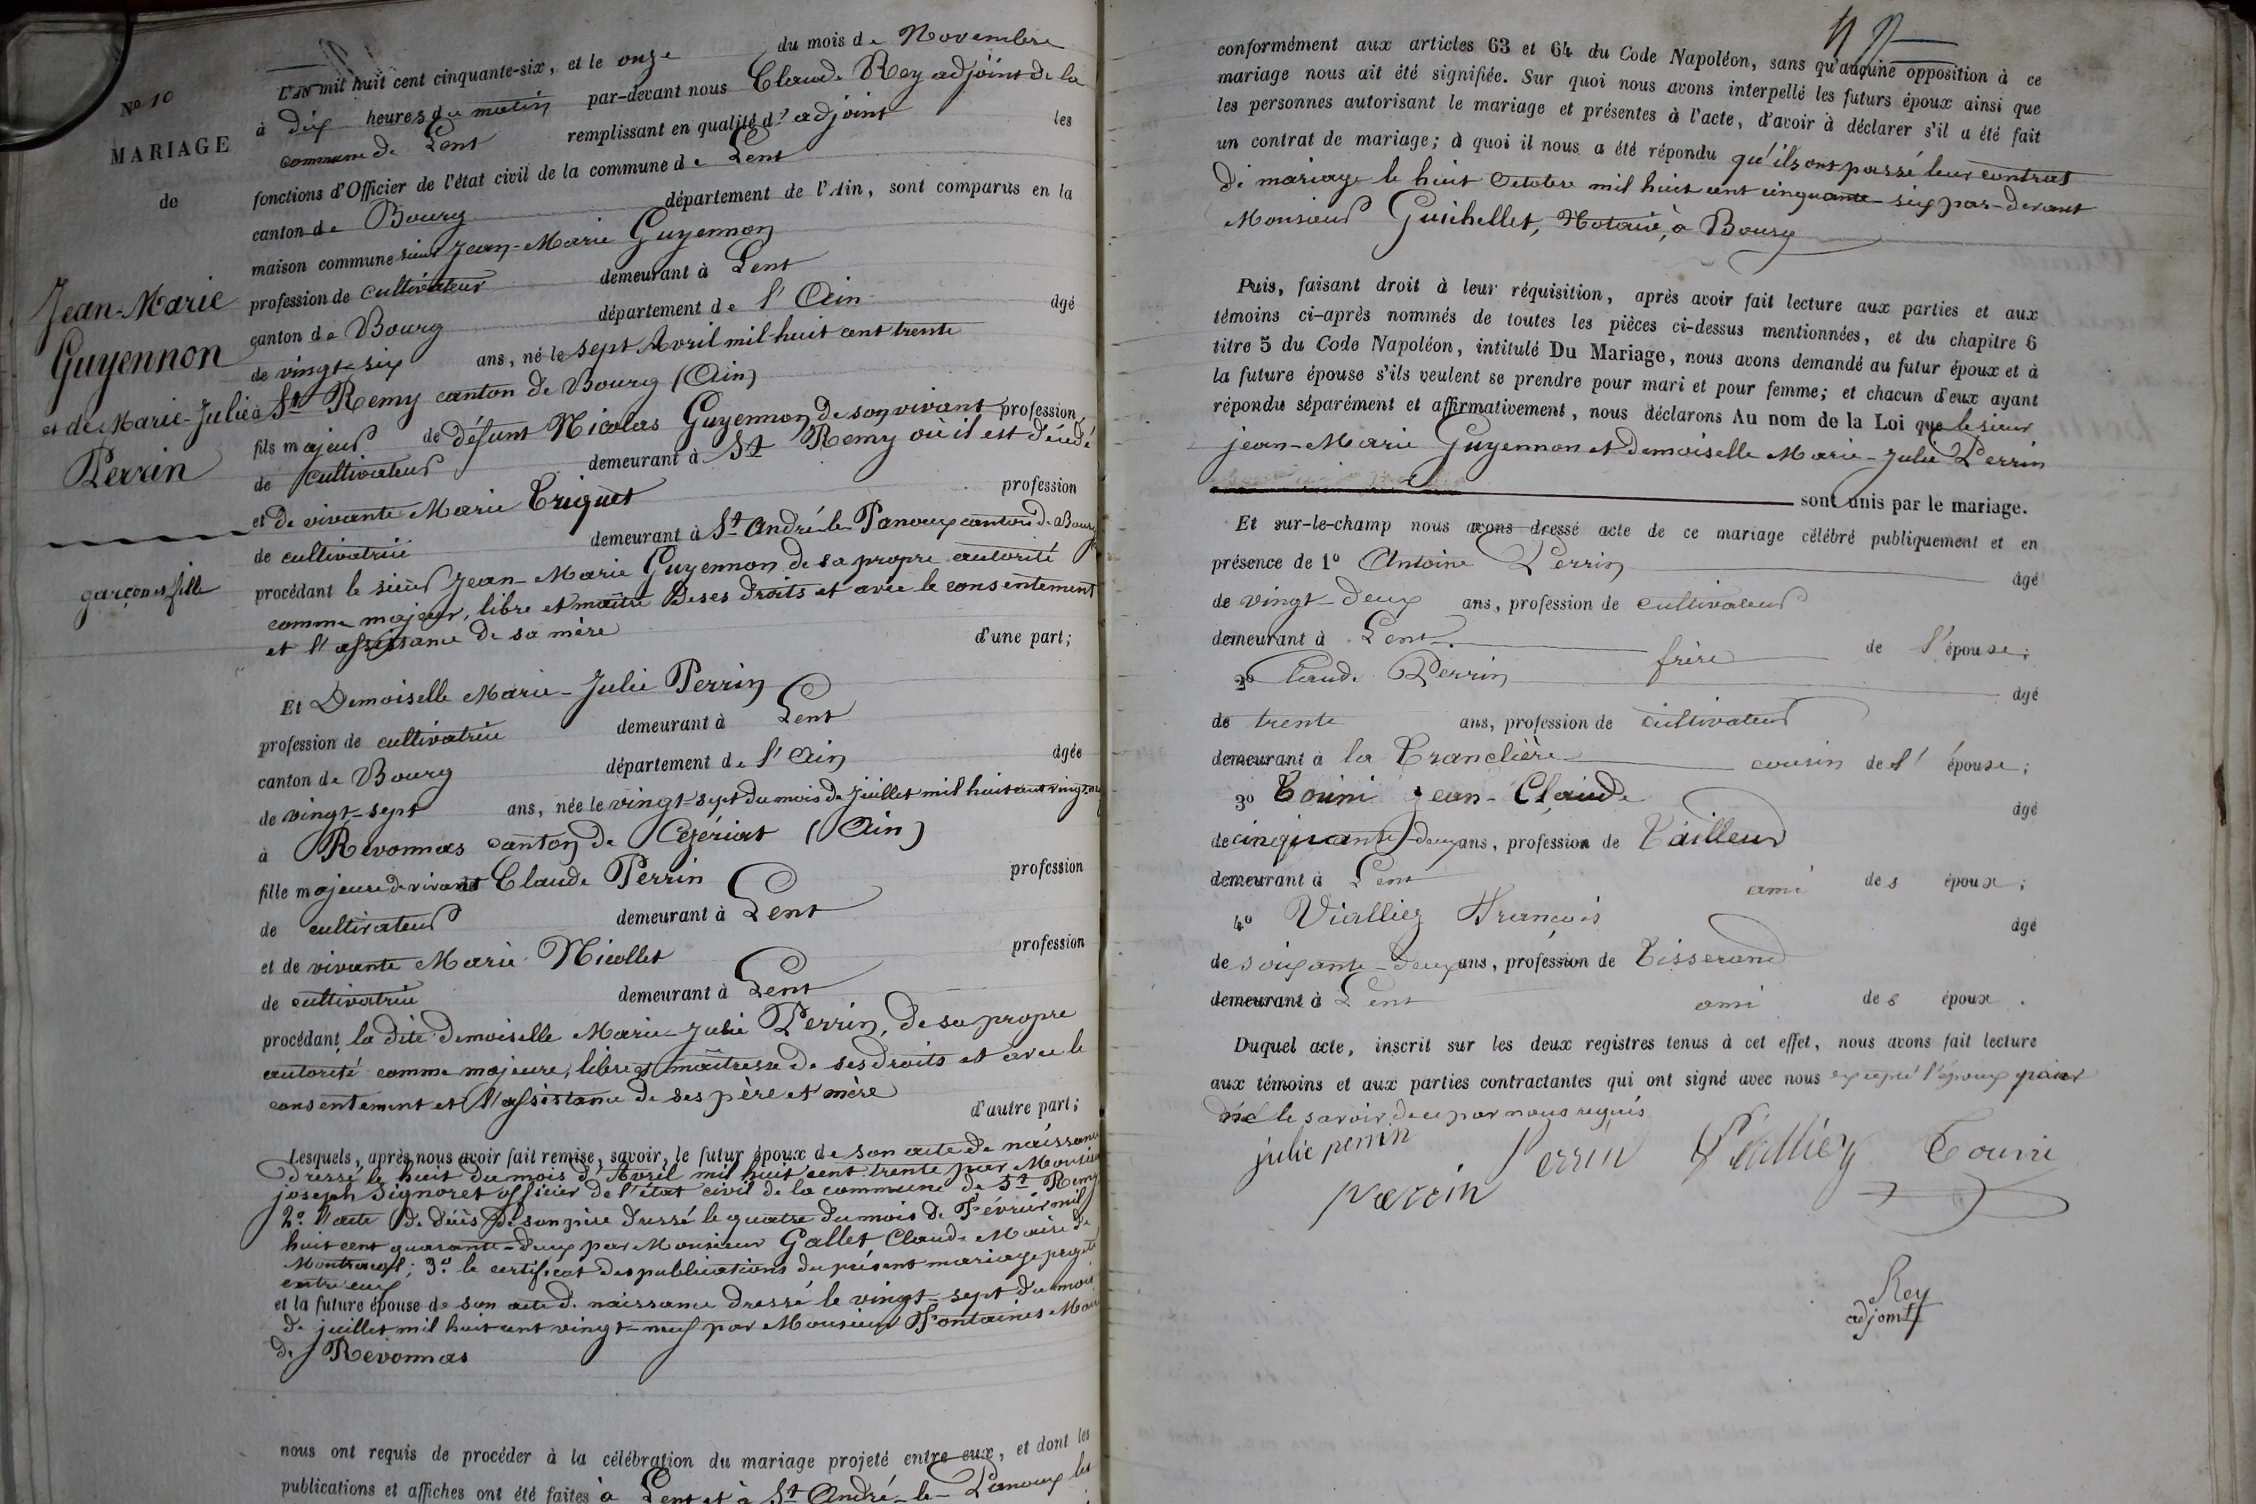 No 10
MARIAGE
de
Jean-Marie
Guyennon
et de Marie-Julie
Perrin
garçon et fille
L'AN mil huit cent cinquante-six, et le onze du mois de Novembre
à dix heures du matin par-devant nous Claude Rey adjoint de la
commune de Lent remplissant en qualité d'adjoint les
fonctions d'Officier de l'état civil de la commune de Lent
canton de Bourg département de l'Ain, sont comparus en la
maison commune sieur Jean-Marie Guyennon
profession de cultivateur demeurant à Lent
canton de Bourg département de l'Ain âgé
de vingt-six ans, né le sept Avril mil huit cent trente
à St Remy canton de Bourg (Ain)
fils majeur de défunt Nicolas Guyennon de son vivant profession
de cultivateur demeurant à St Remy où il est décédé
et de vivante Marie Triquet profession
de cultivatrice demeurant à St André-le-Panoux canton de Bourg
procédant le sieur Jean-Marie Guyennon de sa propre autorité
comme majeur, libre et maître de ses droits et avec le consentement
et l'assistance de sa mère d'une part;
Et Demoiselle Marie-Julie Perrin
profession de cultivatrice demeurant à Lent
canton de Bourg département de l'Ain âgée
de vingt-sept ans, née le vingt-sept du mois de Juillet mil huit cent vingt neuf
à Revonnas canton de Cezériat (Ain)
fille majeure de vivant Claude Perrin profession
de cultivateur demeurant à Lent
et de vivante Marie Nicollet profession
de cultivatrice demeurant à Lent
procédant la dite demoiselle Marie-Julie Perrin, de sa propre
autorité comme majeure, libre et maîtresse de ses droits et avec le
consentement et l'assistance de ses père et mère d'autre part;
Lesquels, après nous avoir fait remise, savoir, le futur époux de son acte de naissance
dressé le huit du mois d'Avril mil huit cent trente par Monsieur
joseph Signoret officier de l'état civil de la commune de St Remy
2o l'acte de décès de son père dressé le quatre du mois de Février mil
huit cent quarante-deux par Monsieur Gallet Claude Maire de
Montracol; 3o le certificat des publications du présent mariage projeté
entre eux
et la future épouse de son acte de naissance dressé le vingt-sept du mois
de juillet mil huit cent vingt-neuf par Monsieur Fontaines Maire
de Revonnas
nous ont requis de procéder à la célébration du mariage projeté entre eux, et dont les
publications et affiches ont été faites à Lent et à St André-le-Panoux les
conformément aux articles 63 et 64 du Code Napoléon, sans qu'aucune opposition à ce
mariage nous ait été signifiée. Sur quoi nous avons interpellé les futurs époux ainsi que
les personnes autorisant le mariage et présentes à l'acte, d'avoir à déclarer s'il a été fait
un contrat de mariage; à quoi il nous a été répondu qu'ils ont passé leur contrat
de mariage le huit Octobre mil huit cent cinquante-six par-devant
Monsieur Guichellet, Notaire, à Bourg
Puis, faisant droit à leur réquisition, après avoir fait lecture aux parties et aux
témoins ci-après nommés de toutes les pièces ci-dessus mentionnées, et du chapitre 6
titre 5 du Code Napoléon, intitulé Du Mariage, nous avons demandé au futur époux et à
la future épouse s'ils veulent se prendre pour mari et pour femme; et chacun d'eux ayant
répondu séparément et affirmativement, nous déclarons Au nom de la Loi que le sieur
jean-Marie Guyennon et demoiselle Marie-Julie Perrin
sont unis par le mariage.
Et sur-le-champ nous avons dressé acte de ce mariage célébré publiquement et en
présence de 1o Antoine Perrin âgé
de vingt-deux ans, profession de cultivateur
demeurant à Lent frère de l'épouse;
2o Claude Perrin âgé
de trente ans, profession de cultivateur
demeurant à la Tranclière cousin de l'épouse;
3o Touini Jean-Claude âgé
de cinquante-deux ans, profession de Tailleur
demeurant à Lent ami des époux;
4o Vialliez François âgé
de soixante-deux ans, profession de Tisserand
demeurant à Lent ami des époux.
Duquel acte, inscrit sur les deux registres tenus à cet effet, nous avons fait lecture
aux témoins et aux parties contractantes qui ont signé avec nous excepté l'époux pour
ne le savoir de ce par nous requis
julie perrin Perrin Vialliez Touini
perrin
Rey
adjoint